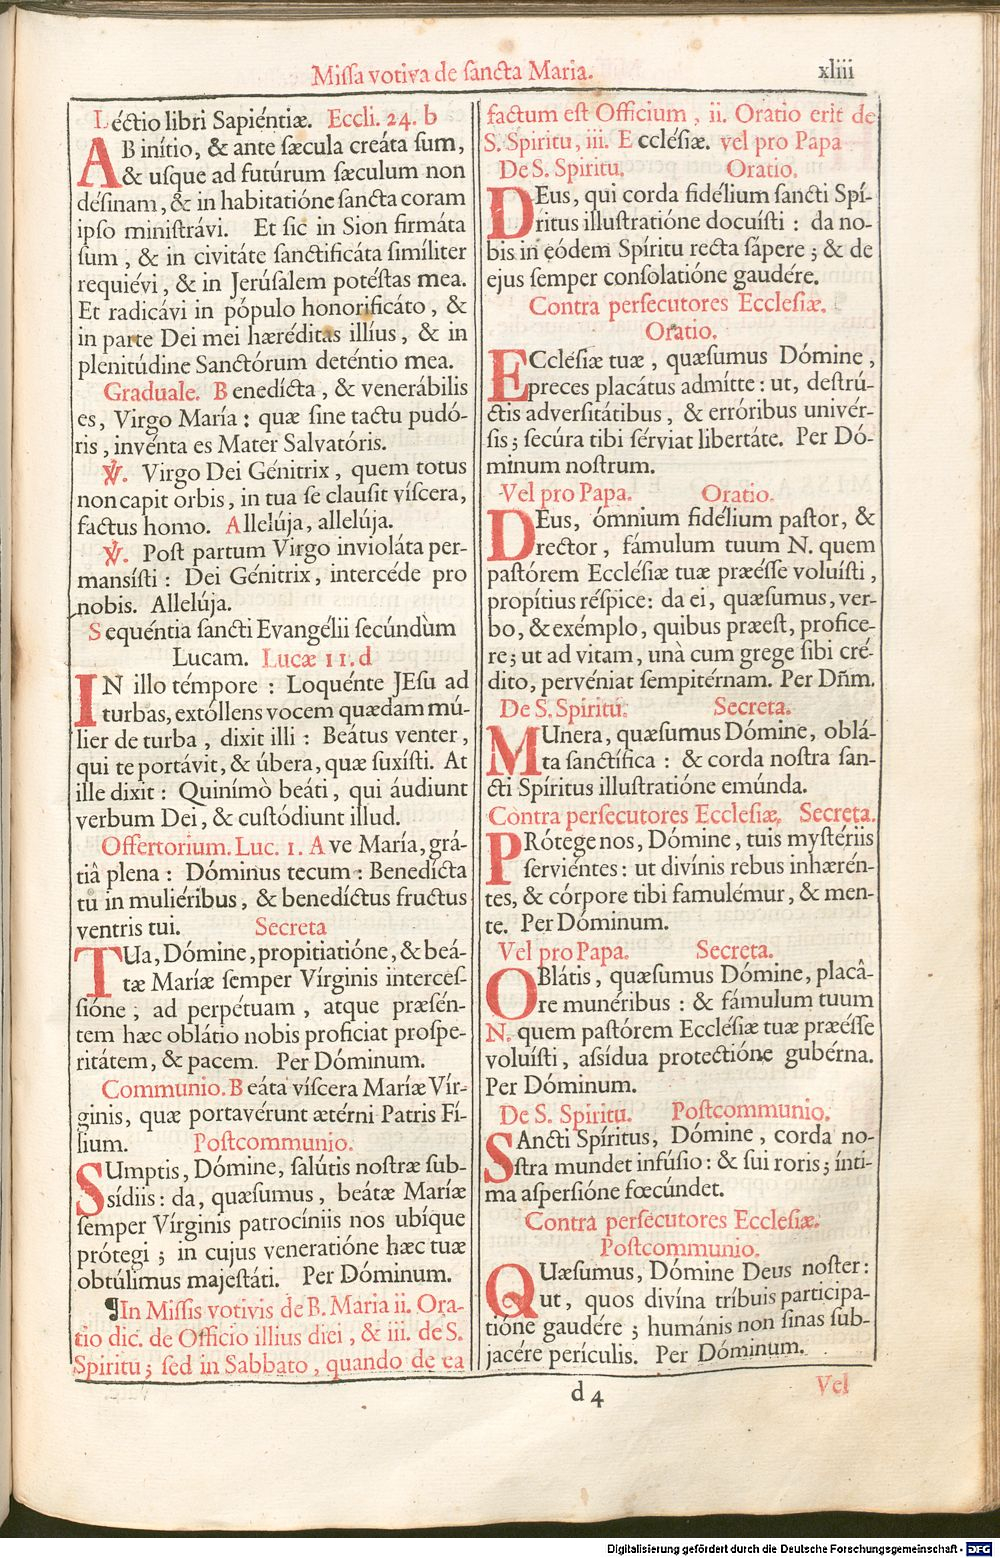 Missa votiva de sancta Maria.
xliii
Léctio libri Sapiéntiæ. Eccli. 24. b
AB inítio, & ante sæcula creáta sum,
& usque ad futúrum sæculum non
désinam, & in habitatióne sancta coram
ipso ministrávi. Et sic in Sion firmáta
sum, & in civitáte sanctificáta simíliter
requiévi, & in Jerúsalem potéstas mea.
Et radicávi in pópulo honorificáto, &
in parte Dei mei hæréditas illíus, & in
plenitúdine Sanctórum deténtio mea.
Graduale. Benedícta, & venerábilis
es, Virgo María: quæ sine tactu pudó-
ris, invénta es Mater Salvatóris.
℣. Virgo Dei Génitrix, quem totus
non capit orbis, in tua se clausit víscera,
factus homo. Allelúja, allelúja.
℣. Post partum Virgo invioláta per-
mansísti: Dei Génitrix, intercéde pro
nobis. Allelúja.
Sequéntia sancti Evangélii secúndùm
Lucam. Lucæ 11. d
IN illo témpore: Loquénte JEsu ad
turbas, extóllens vocem quædam mú-
lier de turba, dixit illi: Beátus venter,
qui te portávit, & úbera, quæ suxísti. At
ille dixit: Quinímò beáti, qui áudiunt
verbum Dei, & custódiunt illud.
Offertorium. Luc. 1. Ave María, grá-
tiâ plena: Dóminus tecum: Benedícta
tu in muliéribus, & benedíctus fructus
ventris tui. Secreta
TUa, Dómine, propitiatióne, & beá-
tæ Maríæ semper Vírginis interces-
sióne; ad perpétuam, atque præsén-
tem hæc oblátio nobis profíciat prospe-
ritátem, & pacem. Per Dóminum.
Communio. Beáta víscera Maríæ Vír-
ginis, quæ portavérunt ætérni Patris Fí-
lium. Postcommunio.
SUmptis, Dómine, salútis nostræ sub-
sídiis: da, quæsumus, beátæ Maríæ
semper Vírginis patrocíniis nos ubíque
prótegi; in cujus veneratióne hæc tuæ
obtúlimus majestáti. Per Dóminum.
¶In Missis votivis de B. Maria ii. Ora-
tio dic. de Officio illius diei, & iii. de S.
Spiritu; sed in Sabbato, quando de ea
factum est Officium, ii. Oratio erit de
S. Spiritu, iii. Ecclésiæ. vel pro Papa
De S. Spiritu. Oratio.
DEus, qui corda fidélium sancti Spí-
ritus illustratióne docuísti: da no-
bis in eódem Spíritu recta sápere; & de
ejus semper consolatióne gaudére.
Contra persecutores Ecclesiæ.
Oratio.
ECclésiæ tuæ, quæsumus Dómine,
preces placátus admítte: ut, destrú-
ctis adversitátibus, & erróribus univér-
sis; secúra tibi sérviat libertáte. Per Dó-
minum nostrum.
Vel pro Papa. Oratio.
DEus, ómnium fidélium pastor, &
rector, fámulum tuum N. quem
pastórem Ecclésiæ tuæ præésse voluísti,
propítius réspice: da ei, quæsumus, ver-
bo, & exémplo, quibus præest, profíce-
re; ut ad vitam, unà cum grege sibi cré-
dito, pervéniat sempitérnam. Per Dñm.
De S. Spiritu. Secreta.
MUnera, quæsumus Dómine, oblá-
ta sanctífica: & corda nostra san-
cti Spíritus illustratióne emúnda.
Contra persecutores Ecclesiæ. Secreta.
PRótege nos, Dómine, tuis mystériis
serviéntes: ut divínis rebus inhærén-
tes, & córpore tibi famulémur, & men-
te. Per Dóminum.
Vel pro Papa. Secreta.
OBlátis, quæsumus Dómine, placâ-
re munéribus: & fámulum tuum
N. quem pastórem Ecclésiæ tuæ præésse
voluísti, assídua protectióne gubérna.
Per Dóminum.
De S. Spiritu. Postcommunio.
SAncti Spíritus, Dómine, corda no-
stra mundet infúsio: & sui roris; ínti-
ma aspersióne fœcúndet.
Contra persecutores Ecclesiæ.
Postcommunio.
QUæsumus, Dómine Deus noster:
ut, quos divína tríbuis participa-
tióne gaudére; humánis non sinas sub-
jacére perículis. Per Dóminum.
d 4
Vel
Digitalisierung gefördert durch die Deutsche Forschungsgemeinschaft - DFG